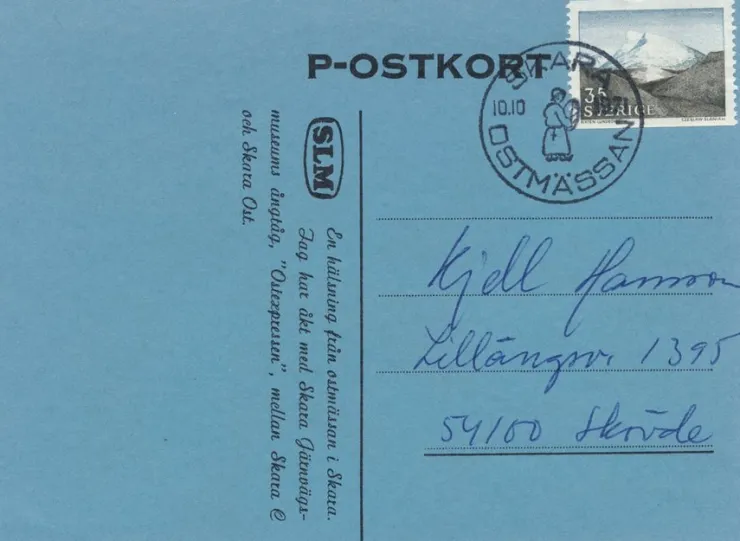 P-OSTKORT
SKARA
10.10
OSTMÄSSAN
35
SVERIGE
SLM
En hälsning från ostmässan i Skara.
Jag har åkt med Skara Järnvägs-
museums ångtåg, "Ostexpressen", mellan Skara C
och Skara Ost.
Kjell Hansson
Lillängsv. 1395
54100 Skövde